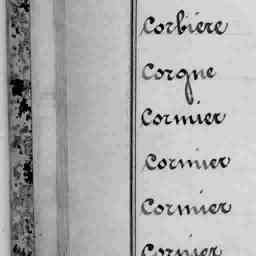 Corbière
Corgne
Cormier
Cormier
Cormier
Cormier